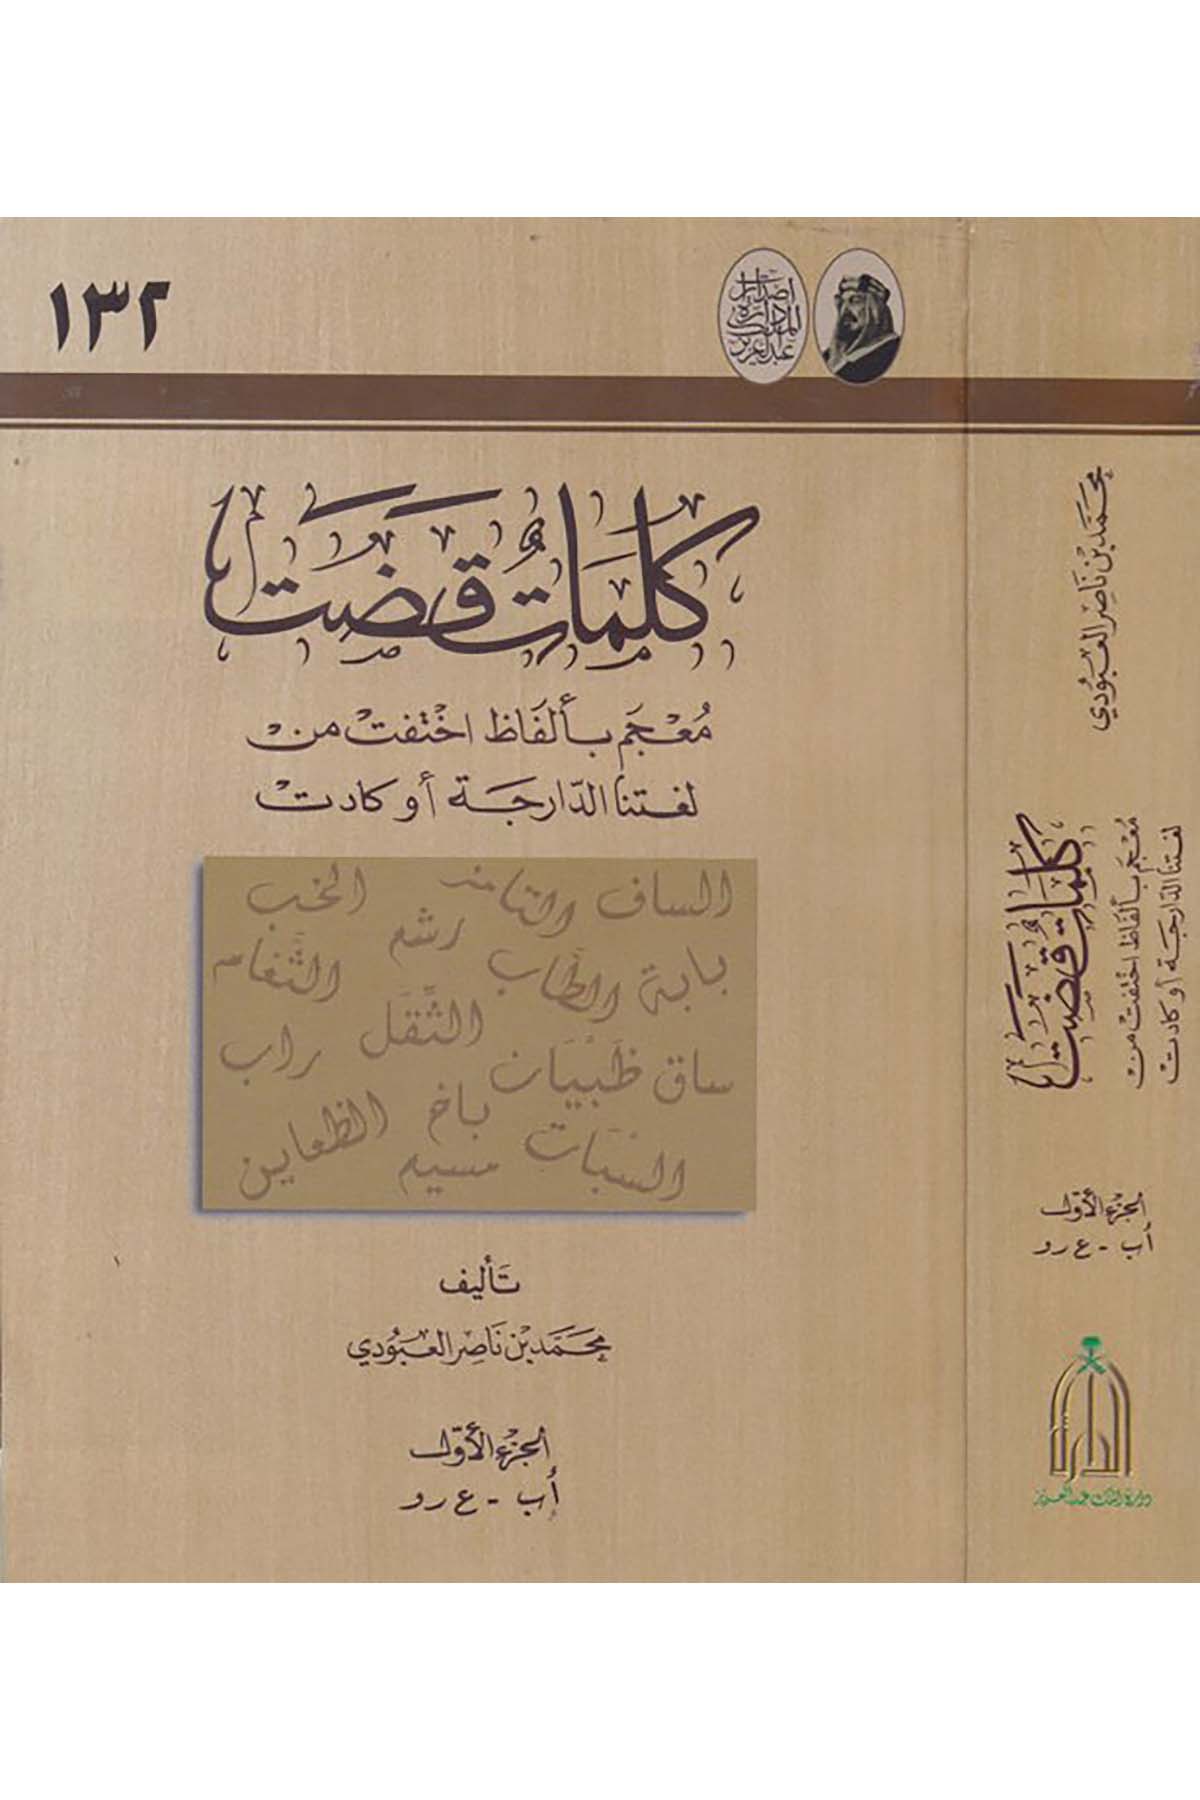 ١٣٢
إصدارات
دارة
الملك
عبدالعزيز
كلمات قضت
مُعْجَم بألفَاظ اختفت من
لغتنا الدّارجَة أو كادت
الساف
الخب
رشم
بابة
الثِّقَل
راب
ساق ظَبْيَان
باخ
الظعاين
السَّبَات
مسيم
تأليف
محمَّد بن نَاصِر العبُودي
الجزء الأوّل
أب - ع رو
محمَّد بن نَاصِر العبُودي
كلمات قضت
مُعْجَم بألفَاظ اختفت من
لغتنا الدّارجَة أو كادت
الجزء الأوّل
أب - ع رو
الدارة
دارة الملك عبدالعزيز